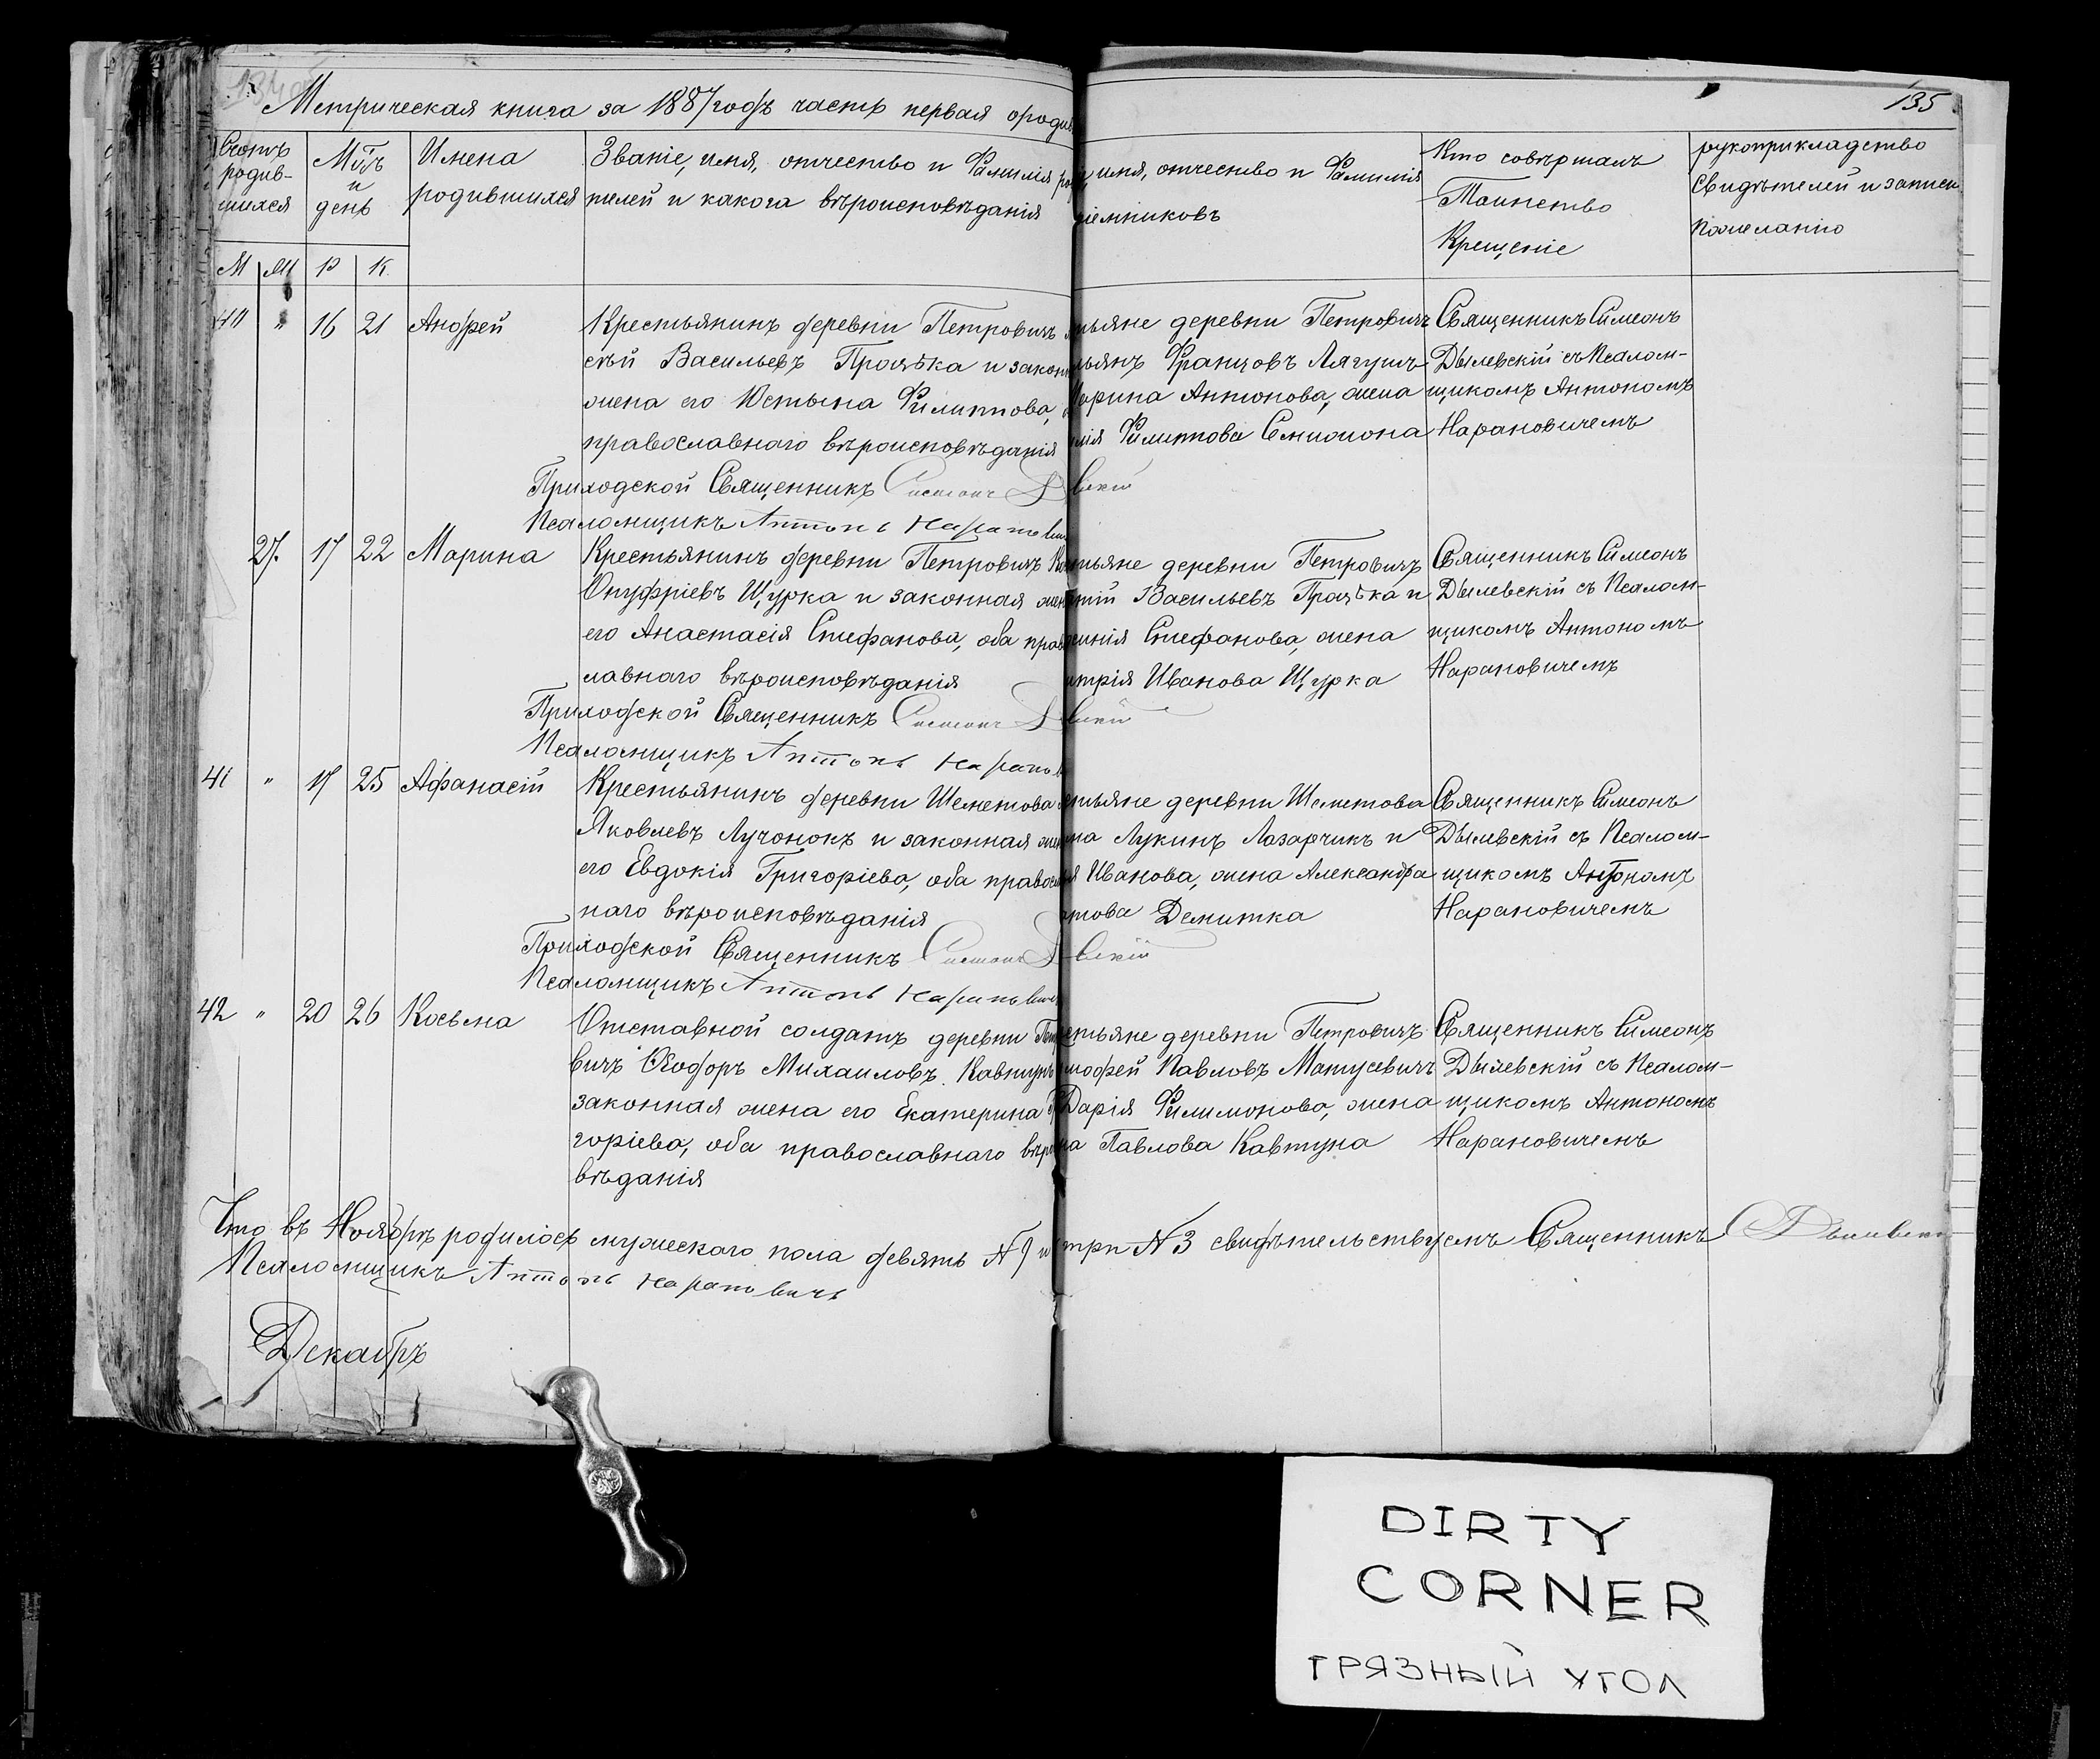 Метрическая книга за 1887 годъ часть первая о роди
135
Счетъ родив-шихся
Мцъ и день
Имена родившихся
Званіе, имя, отчество и Фамилія ро
телей и какога вѣроисповѣданія
имя, отчество и Фамилія
ріемниковъ
Кто совѣршалъ
Таинство
Крещеніе
рукоприкладство
Свидѣтелей и записи
пожеланію
М М Р К
40 " 16 21 Андрей
Крестьянинъ деревни Петровичъ
сѣй Васильевъ Прачка и закон
жена его Юстына Филиппова,
православнаго вѣроисповѣданія
тьяне деревни Петровичъ
льянъ Францовъ Лягушъ
арина Антонова, жена
лія Филиппова Семиона
Священникъ Симеонъ
Дылевскій съ Псалом-
щикомъ Антономъ
Нарановичемъ
Приходской Священникъ Симеонъ Д вскій
Псаломщикъ Антонъ Наранови
27. 17 22 Марина
Крестьянинъ деревни Петровичъ
Онуфріевъ Щурка и законная жен
его Анастасія Стефанова, оба прав
лавнаго вѣроисповѣданія
тьяне деревни Петровичъ
тій Васильевъ Прачка и
енія Стефанова, жена
трія Иванова Щурка
Священникъ Симеонъ
Дылевскій съ Псалом-
щикомъ Антономъ
Нарановичемъ
Приходской Священникъ Симеонъ Д вскій
Псаломщикъ Антонъ Наранов
41 " 17 25 Афанасій
Крестьянинъ деревни Шеметова
Яковлевъ Лучонокъ и законная жен
его Евдокія Григоріева, оба правос
наго вѣроисповѣданія
стьяне деревни Шеметова
ма Лукинъ Лазарчикъ и
я Иванова, жена Александра
това Демитка
Священникъ Симеонъ
Дылевскій съ Псалом-
щикомъ Антономъ
Нарановичемъ
Приходской Священникъ Симеонъ Д вскій
Псаломщикъ Антонъ Наранович
42 " 20 26 Косьма
Отставной солдатъ деревни Пет
вичъ Ѳеодоръ Михаиловъ Кавтунъ
законная жена его Екатерина Г
горіева, оба православнаго вѣро
вѣданія
стьяне деревни Петровичъ
мофей Павловъ Матусевичъ
Дарія Филимонова, жена
на Павлова Кавтуна
Священникъ Симеонъ
Дылевскій съ Псалом-
щикомъ Антономъ
Нарановичемъ
Что въ Ноябрѣ родилось мужескаго пола девять №9 и три №3 свидѣтельствуемъ Священникъ Дылевскі
Псаломщикъ Антонъ Нарановичъ
Декабрь
DIRTY
CORNER
ГРЯЗНЫЙ УГОЛ